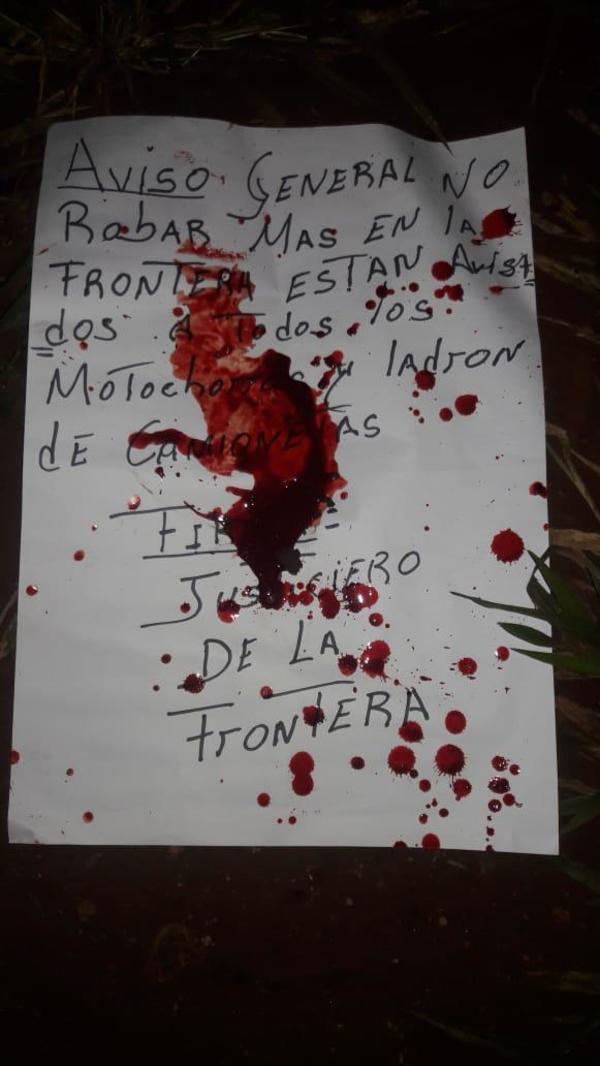 AVISO GENERAL NO
RobAR MAS EN lA
FRONTERA ESTAN AvisA
dos A Todos los
MoTochorros y ladron
dE CAMIONETAS
FIRME
JUSTICIERO
DE LA
FronTERA